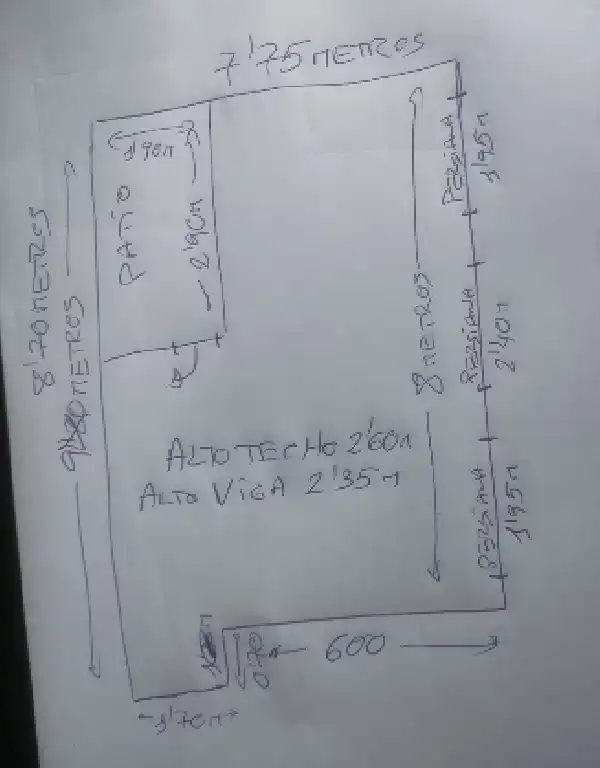 7'75 METROS
1'90M
PATIO
2'90M
PERSIANA
1'95M
8'70 METROS
METROS
8 METROS
PERSIANA
2'40M
ALTO TECHO 2'60M
ALTO VIGA 2'35M
PERSIANA
1'95M
0'70
600
1'70M